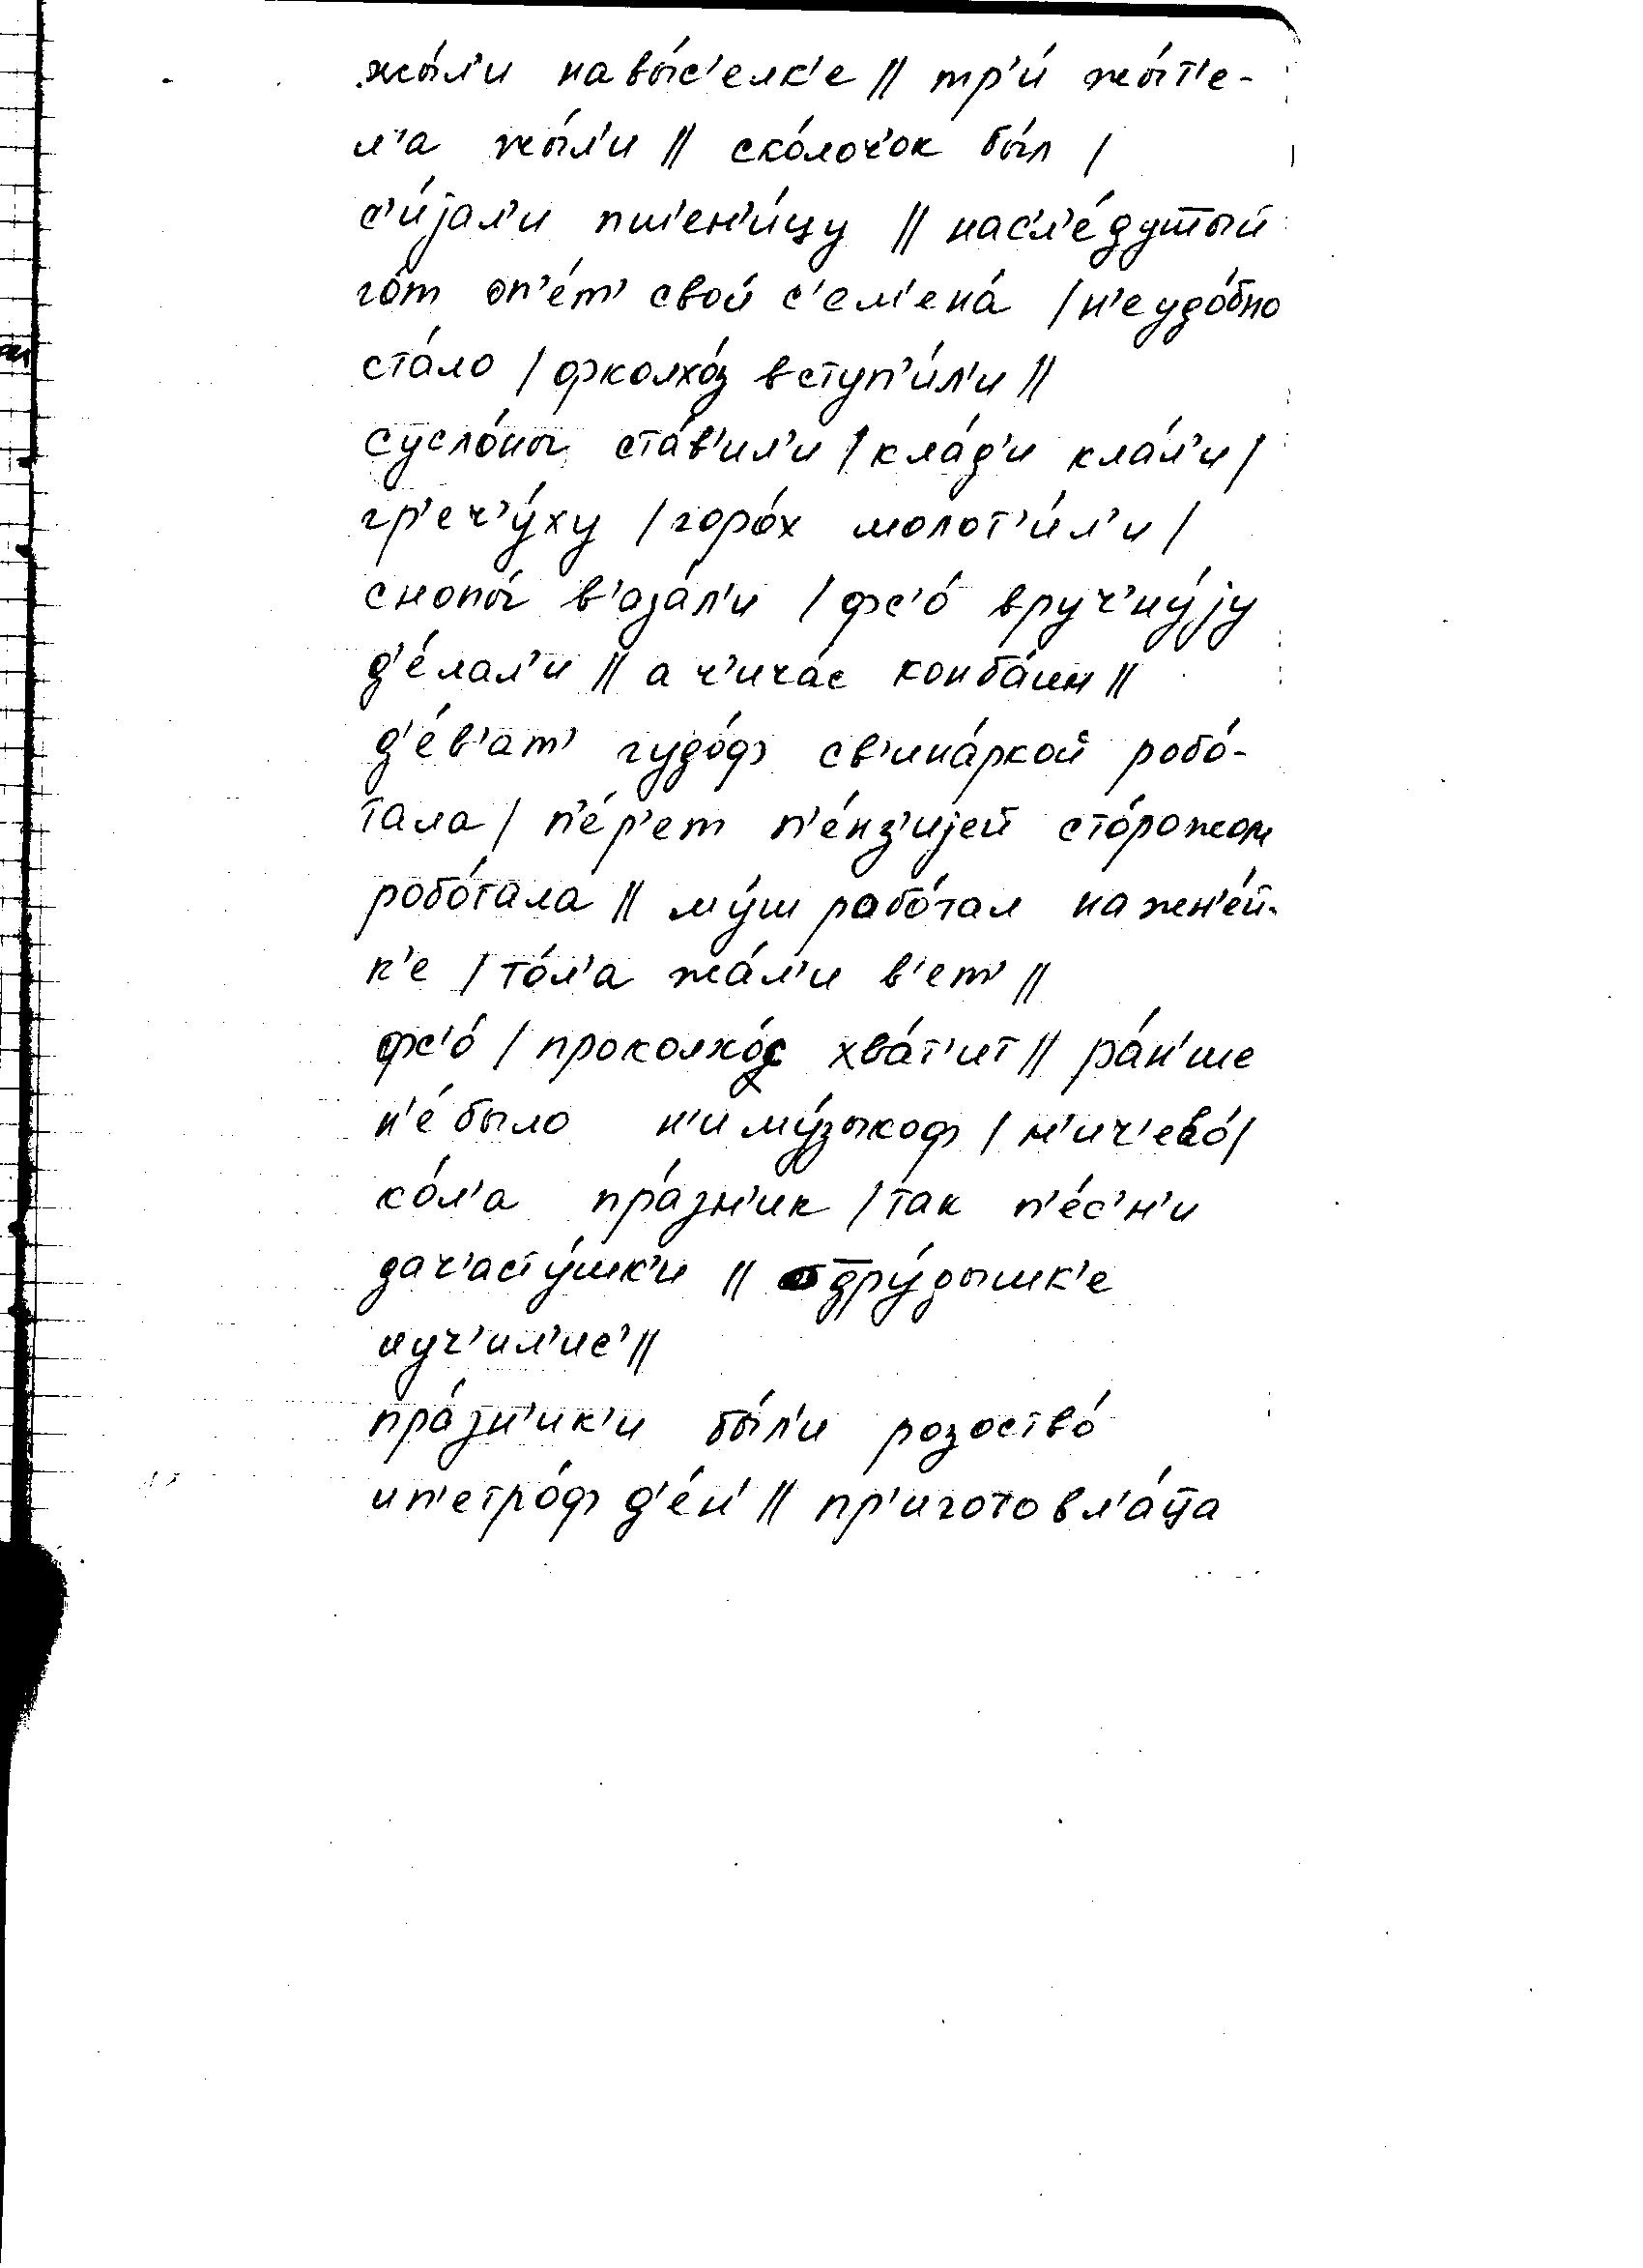 жы́л'и навы́с'елк'е || тр'и́ жы́т'е-
л'а жы́л'и || ско́лоч'ок бы́л |
с'и́jал'и пш'ен'и́цу || насл'е́душый
го́т оп'е́т' свои́ с'ем'ена́ | н'еудо́бно
ста́ло | фколхо́з вступ'и́л'и ||
сусло́ны ста́в'ил'и | кла́д'и кла́л'и |
гр'еч'у́ху | горо́х молот'и́л'и |
снопы́ в'аза́л'и | фс'о́ вруч'ну́jу
д'е́лал'и || а ч'ича́с конба́ин ||
д'е́в'ат' гудо́ф св'ина́ркой робо́-
тала | п'е́р'ет п'е́нз'иjей сто́рожом
робо́тала || му́ш рабо́тал нажн'е́й-
к'е | то́л'а жа́л'и в'ет' ||
фс'о́ | проколхо́с хва́т'ит || ра́н'ше
н'е́было н'иму́зыкоф | н'ич'ево́ |
ко́л'а пра́зн'ик | так п'е́с'н'и
дач'асту́шк'и || одру́дышк'е
нуч'ил'ис' ||
пра́зн'ик'и бы́л'и розоство́
ип'етро́ф д'е́н' || пр'иготовл'а́ца